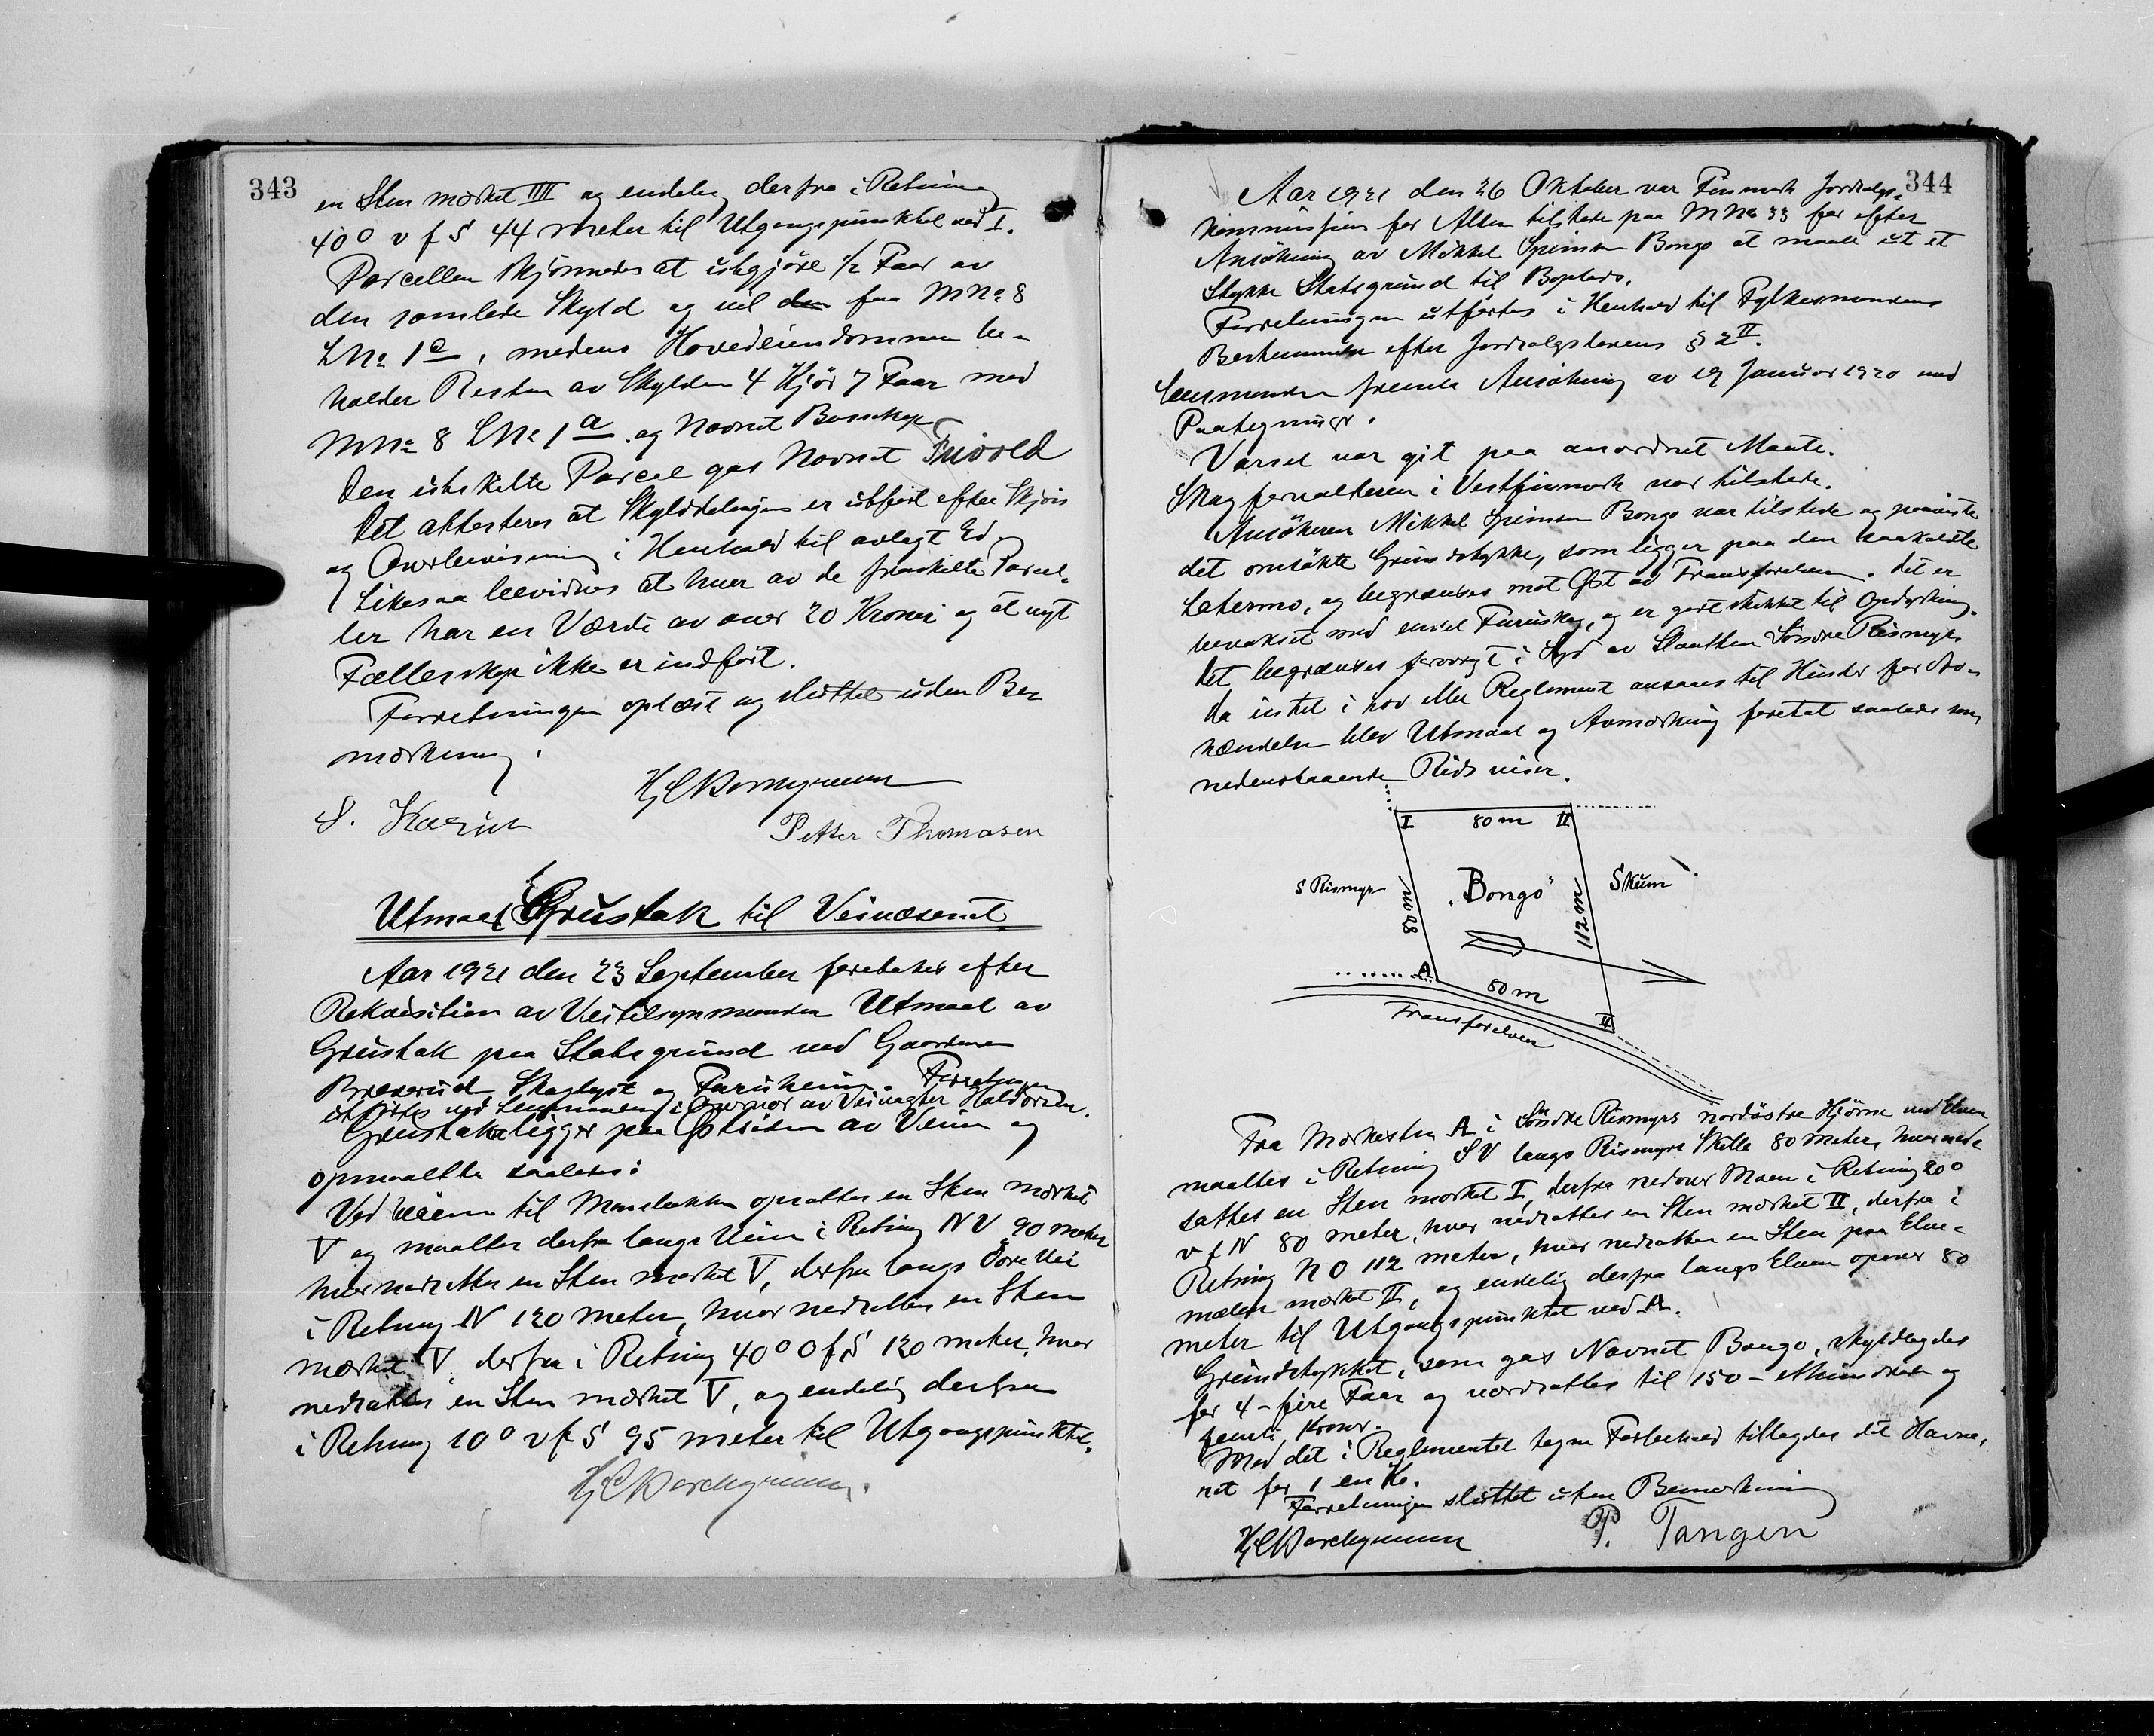 343
en Sten mærket IIII og endelig derfra i Retning
40° v f S 44 meter til Utgangspunktet ved I.
Parcellen skjönnedes at utgjöre 1/2 Faar av
den samlede Skyld og vil den faa MNo 8
LNo 1c, medens Hovedeiendommen be-
holder Resten av Skylden 4 Kjør 7 Faar med
MNo 8 LNo 1a og Navnet Bossekop
Den utskilte Parcel gas Navnet Frivold
Det attesteres at Skylddelingen er utført efter Skjøn
og Overbevisning i Henhold til avlagt Ed.
Likesaa bevidnes at hver av de fraskilte Parcel-
ler har en Værdi av over 20 Kroner og at nyt
Fællesskap ikke er indført.
Forretningen oplæst og sluttet uden Be-
mærkning.
Petter Thomasen
Utmaal Grustak til Veivæsenet
Aar 1921 den 23 September foretokes efter
Rekvisition av Veitilsynsmanden Utmaal av
Grustak paa Statsgrund ved Gaardene
Skoglyst og Furuheim. Forretningen
utførtes ved Lensmanden i Overvær av Veivogter Haldorsen.
Grustaket ligger paa Østsiden av Veien og
opmaaltes saaledes:
Ved Veien til opsattes en Sten mærket
V og maaltes derfra langs Veien i Retning NV 90 meter
hvor nedsattes en Sten mærket V, derfra langs Vei
i Retning N 120 meter, hvor nedsattes en Sten
mærket V, derfra i Retning 40° O f S 120 meter, hvor
nedsattes en Sten mærket V, og endelig derfra
i Retning 10° v f S 95 meter til Utgangspunktet.
344
Aar 1921 den 26 Oktober var Finmark Jordsalgs-
kommission for Alten tilstede paa MNo 33 for efter
Ansökning av Mikkel Bongo at maale ut et
Stykke Statsgrund til Boplads.
Forretningen utførtes i Henhold til Fylkesmandens
Bestemmelse efter Jordsalgslovens § 2 II.
Lensmanden fremla Ansökning av 19 Januar 1920 med
Paategninger.
Varsel var git paa anordnet Maate.
Skogforvalteren i Vestfinmark var tilstede.
Ansökeren Mikkel Bongo var tilstede og paaviste
det omsökte Grundstykke, som ligger paa den saakaldte
og begrænses mot Øst av Transfarelven. Det er
bevokset med endel Furuskog, og er godt skikket til Opdyrkning.
Det begrænses forövrigt i Syd av Söndre Rismyr
Da intet i Lov eller Reglement ansaaes til Hinder for Av-
hændelse blev Utmaal og Avmærkning foretat saaledes som
nedenstaaende Rids viser.
I 80 m II
S Rismyr 80 m „Bongo" 112 m Skum
A 80 m II
Transfarelven
Fra Mærkesten A i Söndre Rismyrs nordöstre Hjörne ved Elven
maaltes i Retning SV langs Rismyrs Skille 80 meter, hvor ned-
sattes en Sten mærket I, derfra nedover Moen i Retning 20°
v f N 80 meter, hvor nedsattes en Sten mærket II, derfra i
Retning NO 112 meter, hvor nedsattes en Sten paa Elve-
mælen mærket II, og endelig derfra langs Elven opover 80
meter til Utgangspunktet ved A.
Grundstykket, som gas Navnet Bongo, skyldlagdes
for 4 - fire Faar og værdsattes til 150 - ethundrede og
femti Kroner.
Med det i Reglementet tagne Forbehold tillagdes det Havne-
ret for 1 en Ko.
Forretningen sluttet uten Bemærkning
P. Tangen